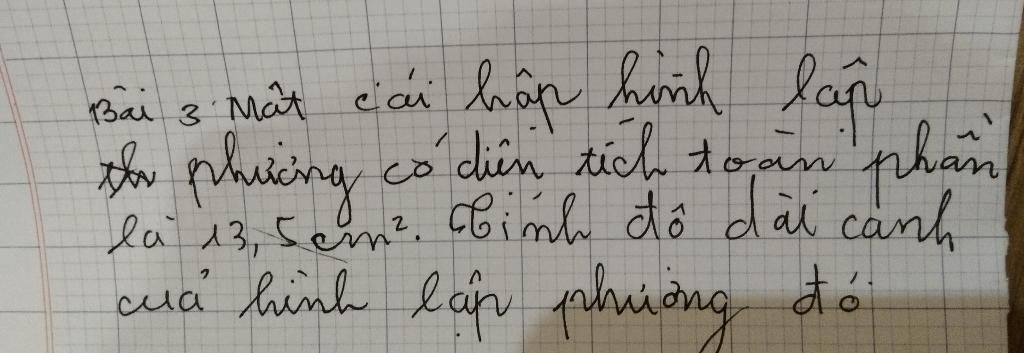 Bài 3 Một cái hộp hình lập
phương có diện tích toàn phần
là 13,5 cm². Tính độ dài cạnh
của hình lập phương đó